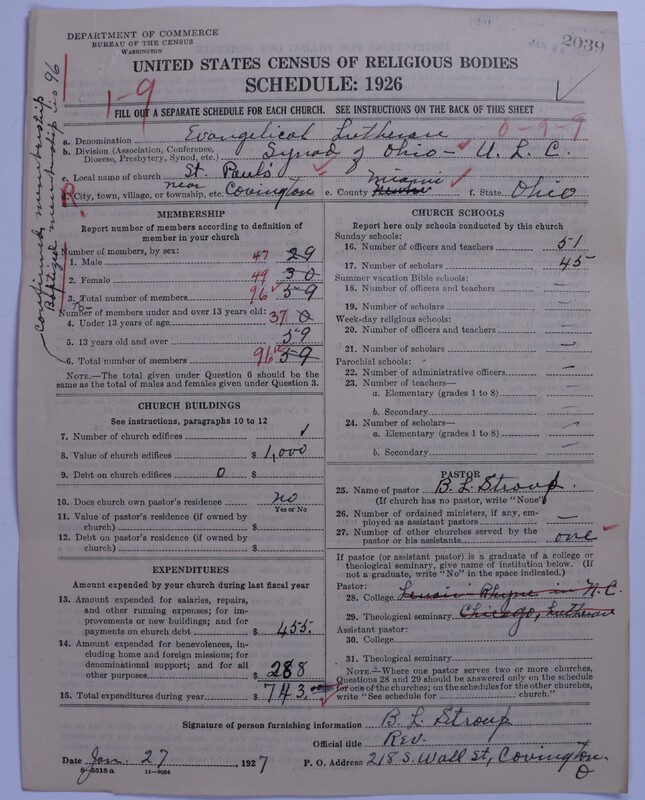 DEPARTMENT OF COMMERCE
BUREAU OF THE CENSUS
WASHINGTON
2039
UNITED STATES CENSUS OF RELIGIOUS BODIES
SCHEDULE: 1926
1-9
FILL OUT A SEPARATE SCHEDULE FOR EACH CHURCH. SEE INSTRUCTIONS ON THE BACK OF THIS SHEET
a. Denomination Evangelical Lutheran 0-9-9
b. Division (Association, Conference, Diocese, Presbytery, Synod, etc.) Synod of Ohio - U. L. C.
c. Local name of church St. Paul's
d. City, town, village, or township, etc. near Covington e. County Miami f. State Ohio
confirmed membership
Baptized membership is 96
MEMBERSHIP
Report number of members according to definition of
member in your church
Number of members, by sex:
1. Male 47 29
2. Female 49 30
3. Total number of members 96 59
Number of members under and over 13 years old:
4. Under 13 years of age 37 0
5. 13 years old and over 59
6. Total number of members 96 59
NOTE.—The total given under Question 6 should be the
same as the total of males and females given under Question 3.
CHURCH BUILDINGS
See instructions, paragraphs 10 to 12
7. Number of church edifices ✓
8. Value of church edifices $ 1,000
9. Debt on church edifices 0 $
10. Does church own pastor's residence no
Yes or No
11. Value of pastor's residence (if owned by
church) $
12. Debt on pastor's residence (if owned by
church) $
EXPENDITURES
Amount expended by your church during last fiscal year
13. Amount expended for salaries, repairs,
and other running expenses; for im-
provements or new buildings; and for
payments on church debt $ 455.
14. Amount expended for benevolences,
including home and foreign missions; for
denominational support; and for all
other purposes $ 288
15. Total expenditures during year $ 743.
CHURCH SCHOOLS
Report here only schools conducted by this church
Sunday schools:
16. Number of officers and teachers 51
17. Number of scholars 45
Summer vacation Bible schools:
18. Number of officers and teachers —
19. Number of scholars —
Week-day religious schools:
20. Number of officers and teachers —
21. Number of scholars —
Parochial schools:
22. Number of administrative officers —
23. Number of teachers—
a. Elementary (grades 1 to 8) —
b. Secondary —
24. Number of scholars—
a. Elementary (grades 1 to 8) —
b. Secondary —
PASTOR
25. Name of pastor B. L. Stroup.
(If church has no pastor, write "None")
26. Number of ordained ministers, if any, em-
ployed as assistant pastors —
27. Number of other churches served by the
pastor or his assistants one
If pastor (or assistant pastor) is a graduate of a college or
theological seminary, give name of institution below. (If
not a graduate, write "No" in the space indicated.)
Pastor:
28. College Lenoir Rhyne in N.C.
29. Theological seminary Chicago, Lutheran
Assistant pastor:
30. College
31. Theological seminary
NOTE.—Where one pastor serves two or more churches,
Questions 28 and 29 should be answered only on the schedule
for one of the churches; on the schedules for the other churches,
write "See schedule for church."
Signature of person furnishing information B. L. Stroup
Official title Rev.
Date Jan. 27, 1927 P. O. Address 218 S. Wall St, Covington, O
8-5518a 11-9064